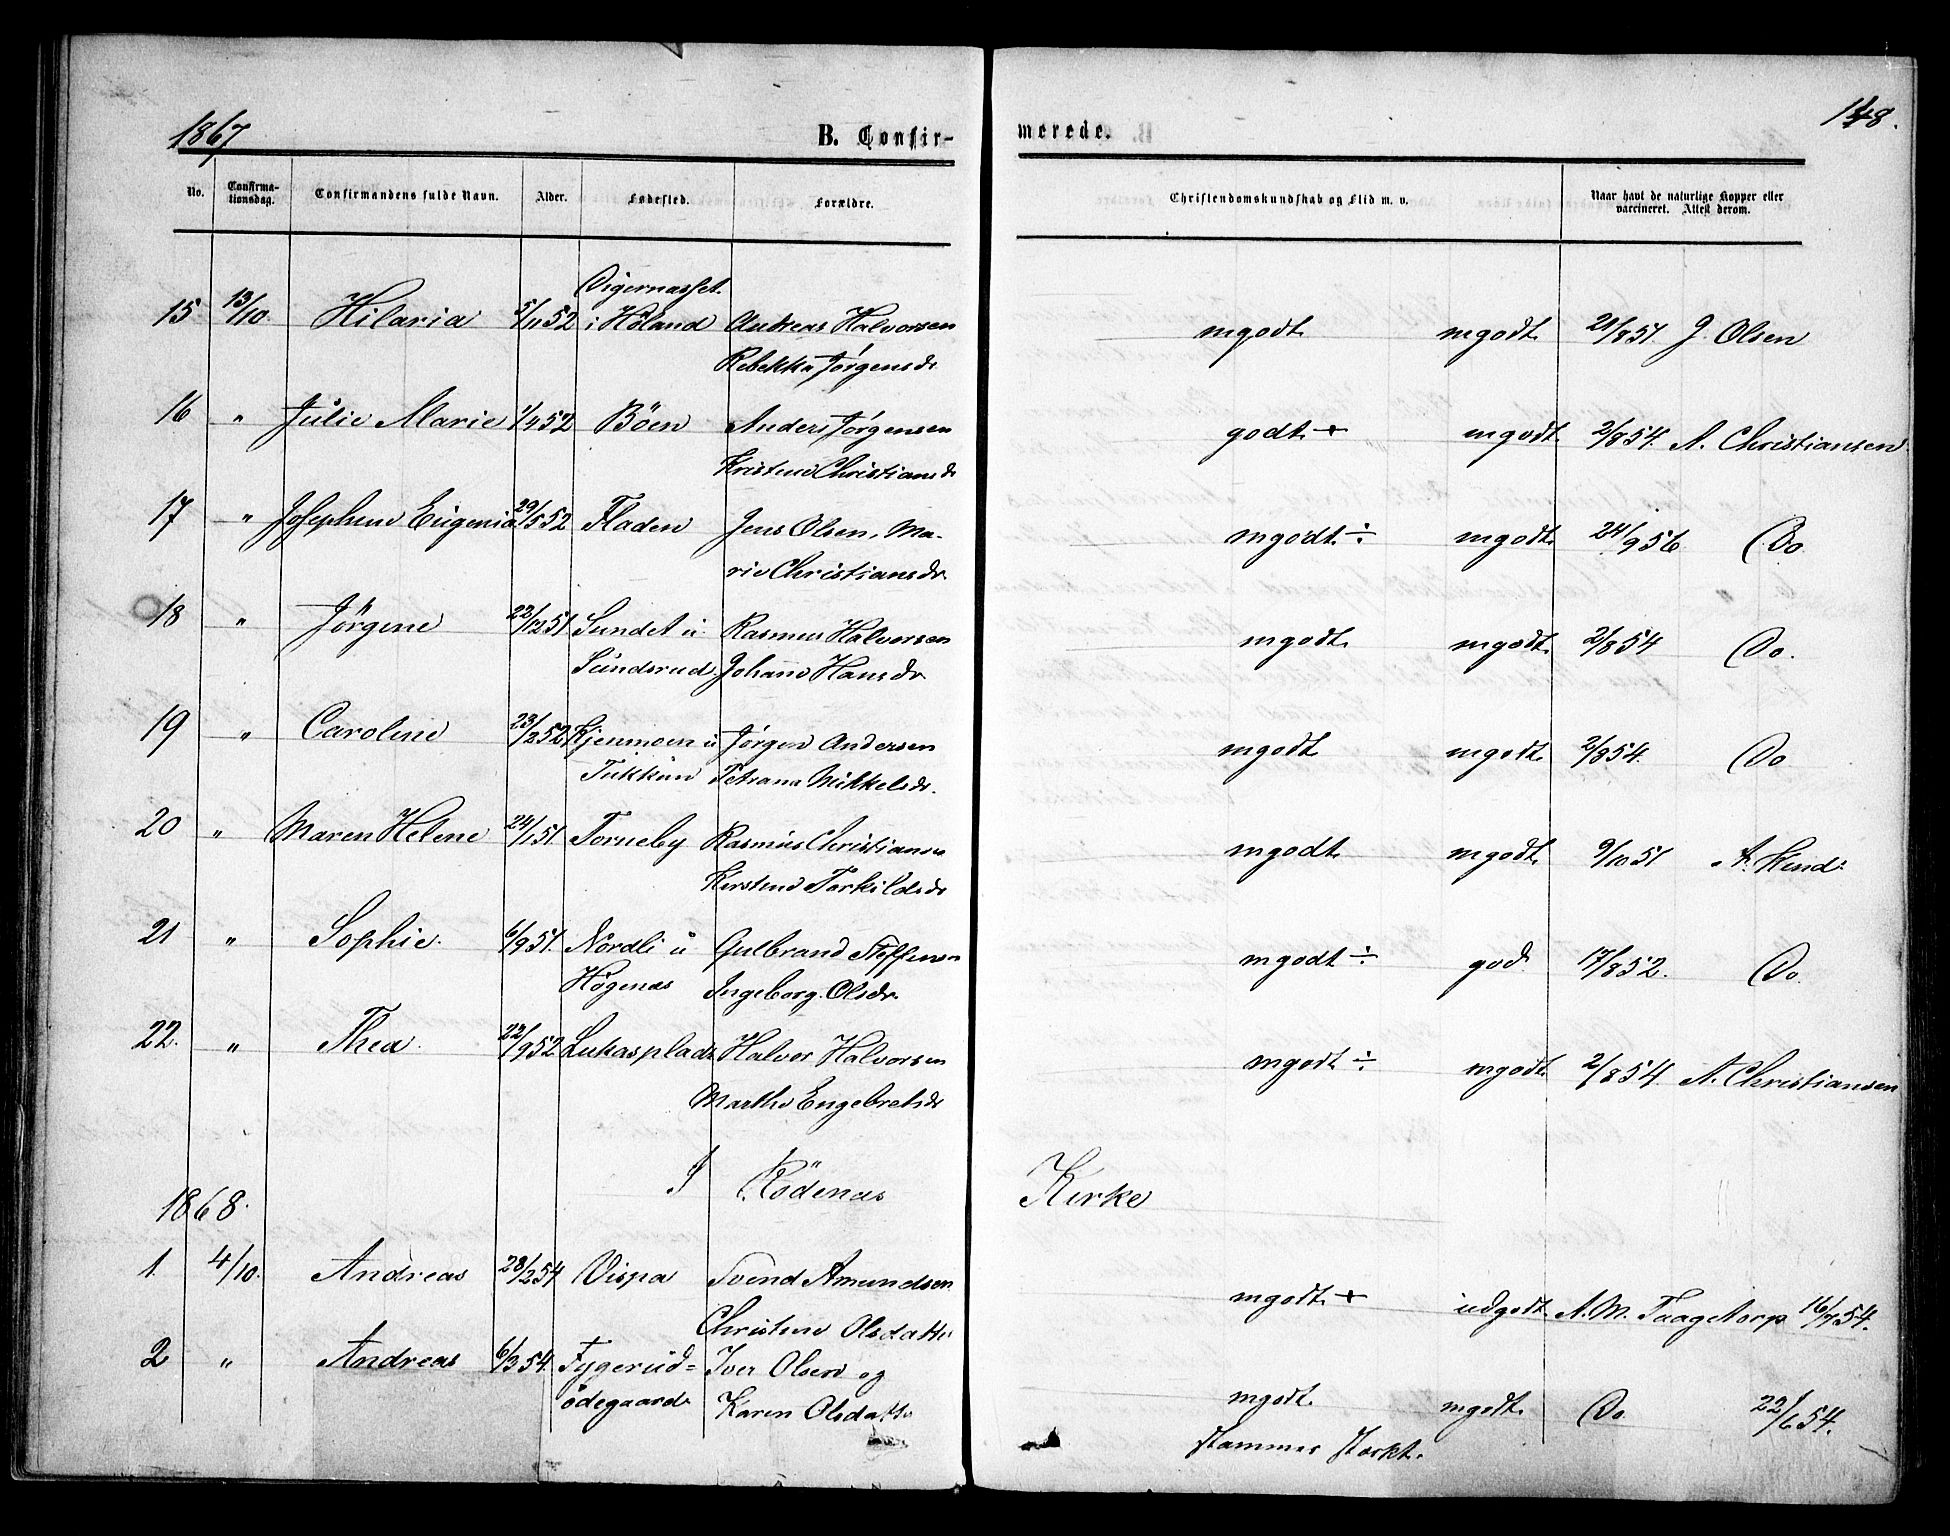 1867
B. Confir-
merede.
148.
No.
Confirma-
tionsdag.
Confirmandens fulde Navn.
Alder.
Fødested.
Forældre.
Christendomskundskab og Flid m. v.
Naar havt de naturlige Kopper eller
vaccineret. Attest derom.
Digernæsset
15 13/10. Hilaria 5/11 52 i Höland Andreas Halvorsen mgodt. mgodt. 21/8 51 J. Olsen
Rebekka Jörgensdr
16 " Julie Marie 1/4 52 Böen Anders Jörgensen godt + mgodt. 2/8 54. A. Christiansen.
Kristine Christiansdr
17 " Josephine Eugenia 29/5 52 Fladen Jens Olsen, Ma- mgodt ÷ mgodt. 24/9 56 Do.
rie Christiansdr.
18 " Jörgine 22/12 51 Sundet u. Rasmus Halvorsen mgodt. mgodt. 2/8 54 Do.
Sundsrud. Johanne Hansdr
19 " Caroline 23/2 52 Kjenmoen u Jörgen Andersen mgodt mgodt. 2/8 54. Do
Tukkun Petrana Mikkelsdr.
20 " Maren Helene 24/1 51 Torneby Rasmus Christiansen mgodt mgodt. 9/10 51 A. Kind.
Kirstine Torkildsdr
21 " Sophie. 6/9 51. Nordli u Gulbrand Steffensen mgodt ÷ god 17/8 52. Do.
Högenæs Ingeborg Olsdr.
22. " Thea. 22/9 52 Lukasplads Halvor Halvorsen mgodt ÷ mgodt. 2/8 54. A. Christiansen
Marthe Engebretsdr
I Rödenæs Kirke
1868.
1. 4/10. Andreas 28/2 54 Vispa Svend Amundsen mgodt + udgodt. A. M. Taagetorp 16/7 54.
Christine Olsdatter
2 " Andreas 6/3 54. Fygerud= Iver Olsen og mgodt. mgodt. Do. 22/6 54.
ödegaard. Karen Olsdatter
stammer stærkt.